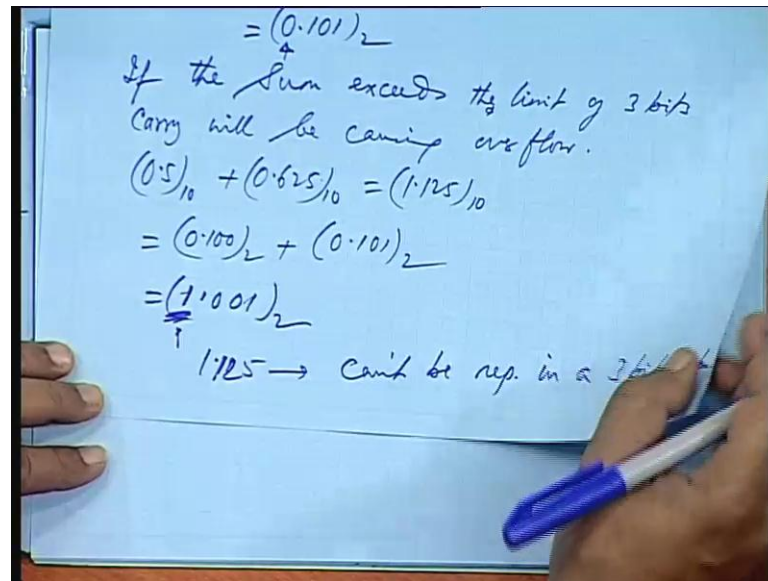 = (0.101)₂
If the Sum exceeds the limit of 3 bits
Carry will be causing overflow.
(0.5)₁₀ + (0.625)₁₀ = (1.125)₁₀
= (0.100)₂ + (0.101)₂
= (1.001)₂
1.125 → can't be rep. in a 3 bit